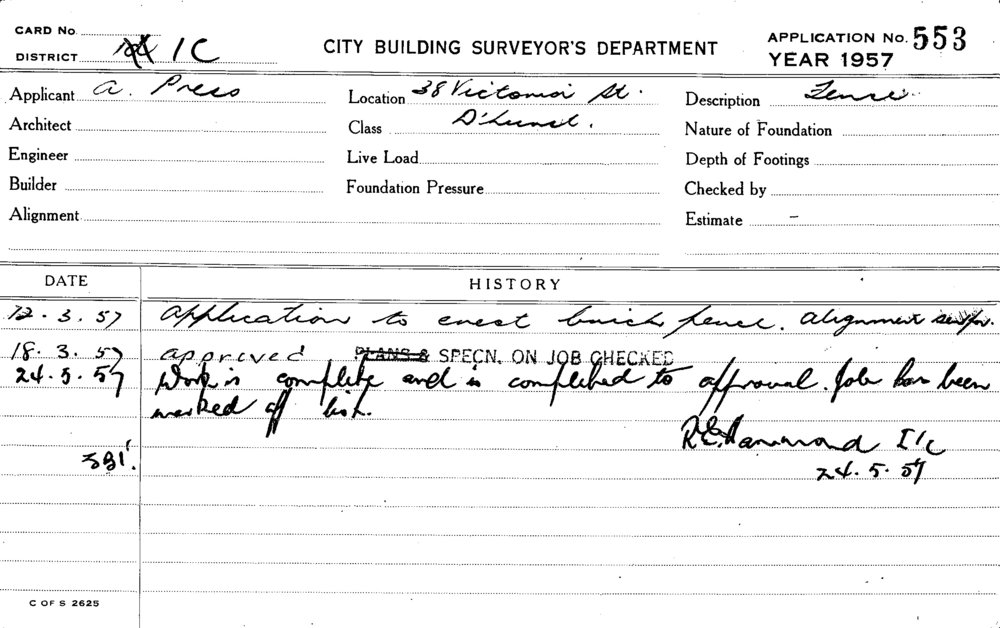 CARD No.
DISTRICT 1C
CITY BUILDING SURVEYOR'S DEPARTMENT
APPLICATION No. 553
YEAR 1957
Applicant A. Press
Location 38 Victoria St.
Description Fence.
Architect
Class D'hurst.
Nature of Foundation
Engineer
Live Load
Depth of Footings
Builder
Foundation Pressure
Checked by
Alignment
Estimate –
DATE
HISTORY
12.3.57 Application to erect brick fence. Alignment
18.3.57 approved PLANS & SPECN. ON JOB CHECKED
24.5.57 Work is complete and is completed to approval. Job has been
marked off list.
R.E. Hammond I/C
24.5.57
C OF S 2625